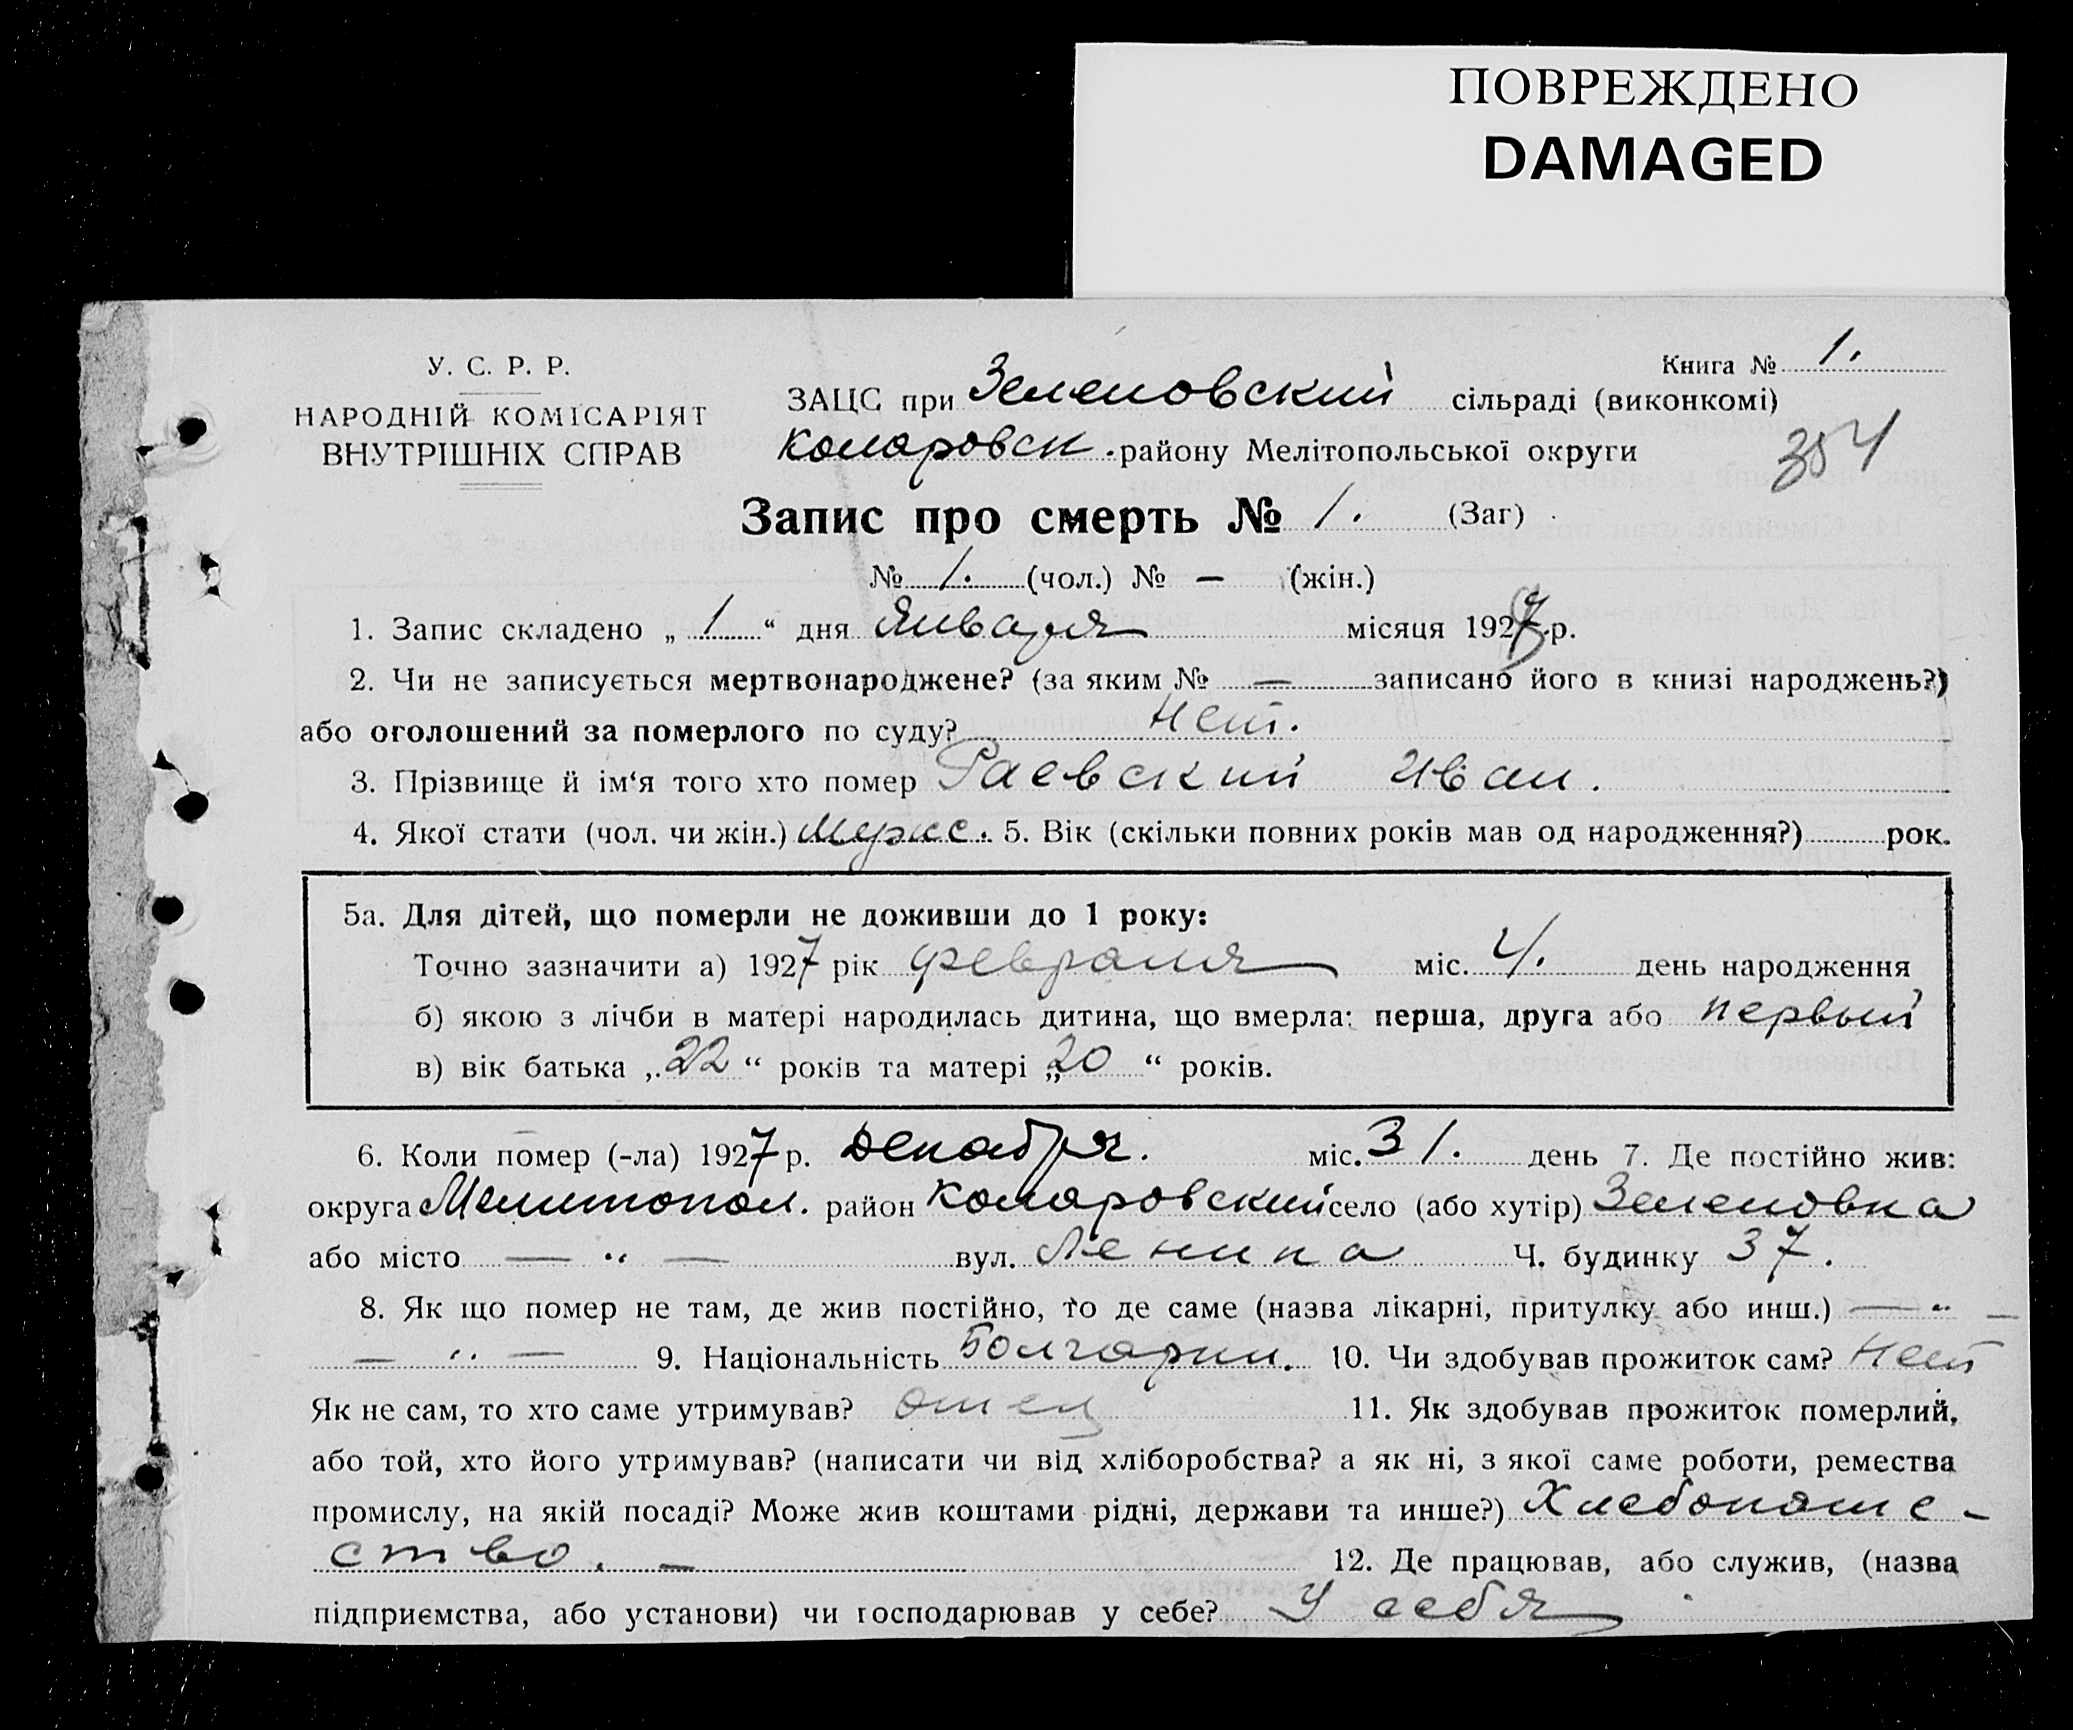 ПОВРЕЖДЕНО
DAMAGED
У. С. Р. Р.
НАРОДНІЙ КОМІСАРІЯТ
ВНУТРІШНІХ СПРАВ
Книга № 1.
ЗАЦС при Зеленовский сільраді (виконкомі)
Комаровск. району Мелітопольської округи
354
Запис про смерть № 1. (Заг)
№ 1. (чол.) № — (жін.)
1. Запис складено „ 1 “ дня Января місяця 1928 р.
2. Чи не записується мертвонароджене? (за яким № — записано його в книзі народжень?)
або оголошений за померлого по суду? Нет.
3. Прізвище й ім‘я того хто помер Раевский Иван.
4. Якої стати (чол. чи жін.) Мужс. 5. Вік (скільки повних років мав од народження?) рок.
5а. Для дітей, що померли не доживши до 1 року:
Точно зазначити а) 1927 рік февраля міс. 4. день народження
б) якою з лічби в матері народилась дитина, що вмерла: перша, друга або первый
в) вік батька „ 22 “ років та матері „ 20 “ років.
6. Коли помер (-ла) 1927 р. Декабря. міс. 31. день 7. Де постійно жив:
округа Мелитопол. район Комаровский село (або хутір) Зеленовка
або місто — „ — вул. Ленина Ч. будинку 37.
8. Як що помер не там, де жив постійно, то де саме (назва лікарні, притулку або инш.) — „ —
— „ — 9. Національність Болгарин. 10. Чи здобував прожиток сам? Нет
Як не сам, то хто саме утримував? отец 11. Як здобував прожиток померлий,
або той, хто його утримував? (написати чи від хліборобства? а як ні, з якої саме роботи, ремества
промислу, на якій посаді? Може жив коштами рідні, держави та инше?) Хлебопаше-
ство. — 12. Де працював, або служив, (назва
підприємства, або установи) чи господарював у себе? У себя